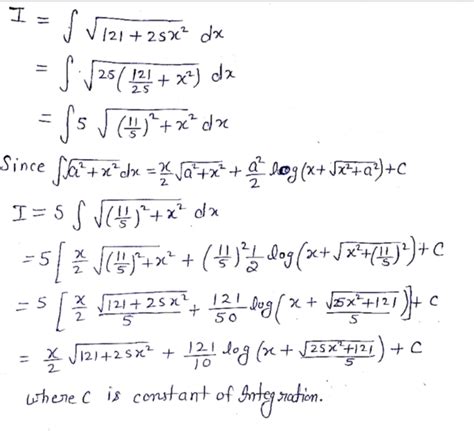 I = ∫ √(121 + 25x²) dx
= ∫ √(25(121/25 + x²)) dx
= ∫ 5 √((11/5)² + x²) dx
Since ∫√(a² + x²) dx = x/2 √(a² + x²) + a²/2 log(x + √(x² + a²)) + C
I = 5 ∫ √((11/5)² + x²) dx
= 5 [ x/2 √((11/5)² + x²) + (11/5)² 1/2 log(x + √(x² + (11/5)²)) + C
= 5 [ x/2 √(121 + 25x²)/5 + 121/50 log(x + √(25x² + 121)/5) ] + C
= x/2 √(121 + 25x²) + 121/10 log(x + √(25x² + 121)/5) + C
where C is constant of Integration.